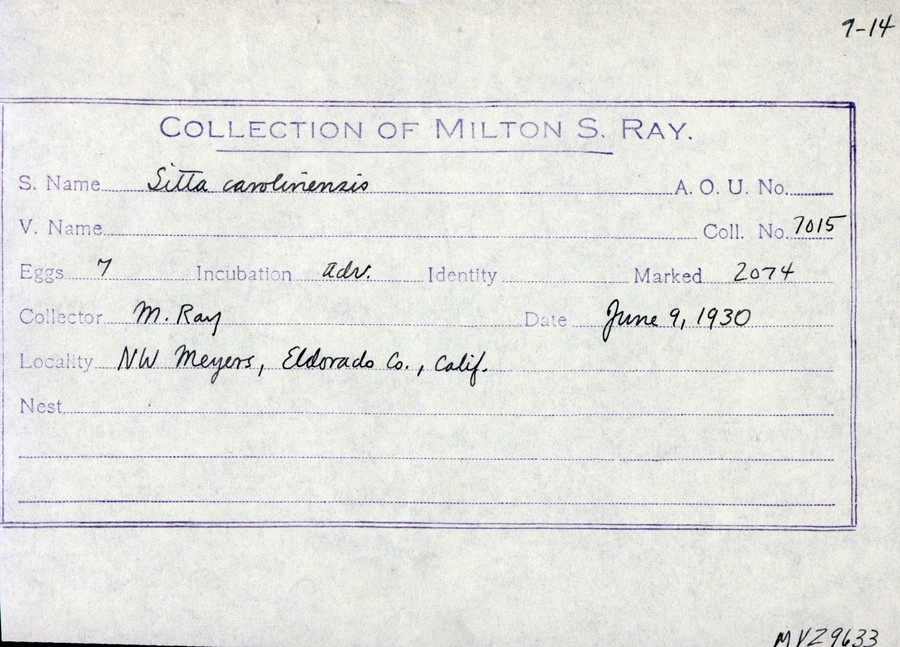 9-14
COLLECTION OF MILTON S. RAY.
S. Name Sitta carolinensis A. O. U. No.
V. Name Coll. No. 7015
Eggs 7 Incubation adv. Identity Marked 2074
Collector M. Ray Date June 9, 1930
Locality NW Meyers, Eldorado Co., Calif.
Nest
MVZ9633